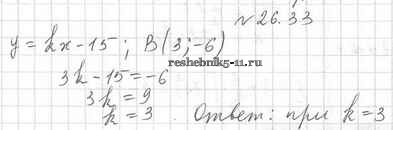 № 26.33
y = kx - 15 ; B(3; -6)
3k - 15 = -6
reshebnik5-11.ru
3k = 9
k = 3. Ответ: при k = 3